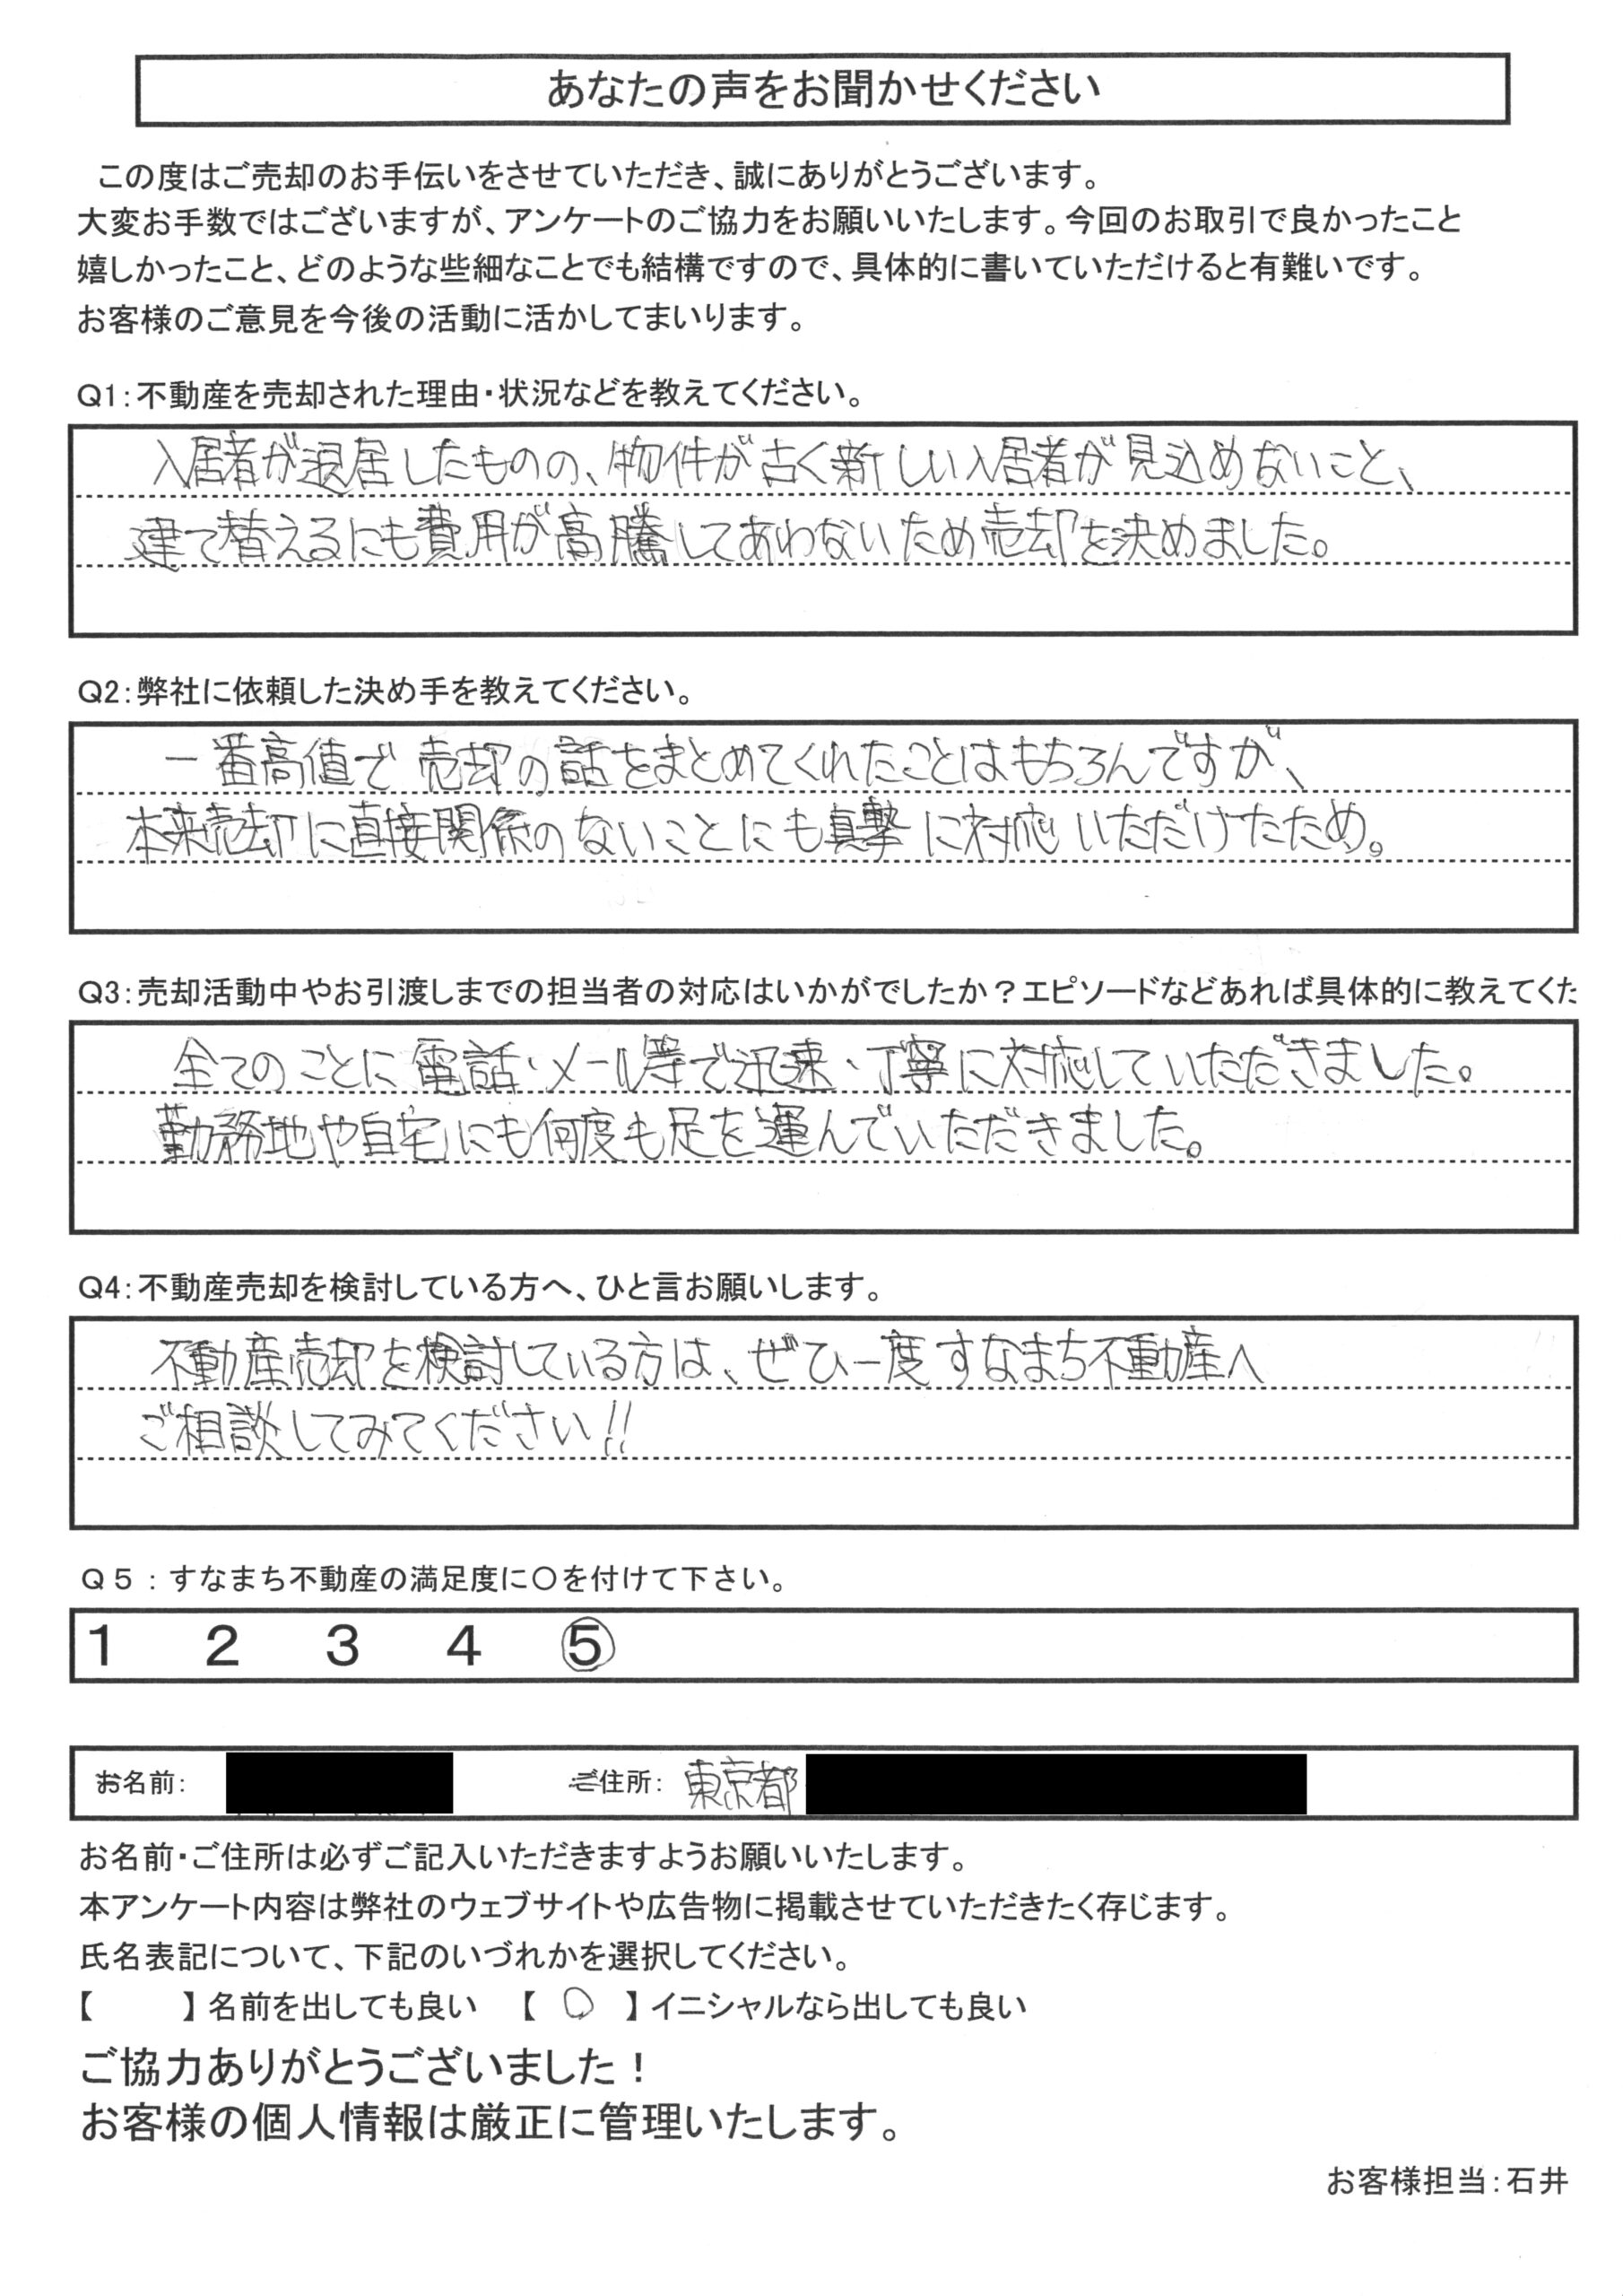 あなたの声をお聞かせください
この度はご売却のお手伝いをさせていただき、誠にありがとうございます。
大変お手数ではございますが、アンケートのご協力をお願いいたします。今回のお取引で良かったこと
嬉しかったこと、どのような些細なことでも結構ですので、具体的に書いていただけると有難いです。
お客様のご意見を今後の活動に活かしてまいります。
Q1:不動産を売却された理由・状況などを教えてください。
入居者が退居したものの、物件が古く新しい入居者が見込めないこと、
建て替えるにも費用が高騰してあわないため売却を決めました。
Q2:弊社に依頼した決め手を教えてください。
一番高値で売却の話をまとめてくれたことはもちろんですが、
本来売却に直接関係のないことにも真摯に対応いただけたため。
Q3:売却活動中やお引渡しまでの担当者の対応はいかがでしたか?エピソードなどあれば具体的に教えてくた
全てのことに電話・メール等で迅速・丁寧に対応していただきました。
勤務地や自宅にも何度も足を運んでいただきました。
Q4:不動産売却を検討している方へ、ひと言お願いします。
不動産売却を検討している方は、ぜひ一度すなまち不動産へ
ご相談してみてください!!
Q5:すなまち不動産の満足度に〇を付けて下さい。
1 2 3 4 5
お名前: ご住所: 東京都
お名前・ご住所は必ずご記入いただきますようお願いいたします。
本アンケート内容は弊社のウェブサイトや広告物に掲載させていただきたく存じます。
氏名表記について、下記のいづれかを選択してください。
【 】名前を出しても良い 【 〇 】イニシャルなら出しても良い
ご協力ありがとうございました!
お客様の個人情報は厳正に管理いたします。
お客様担当:石井